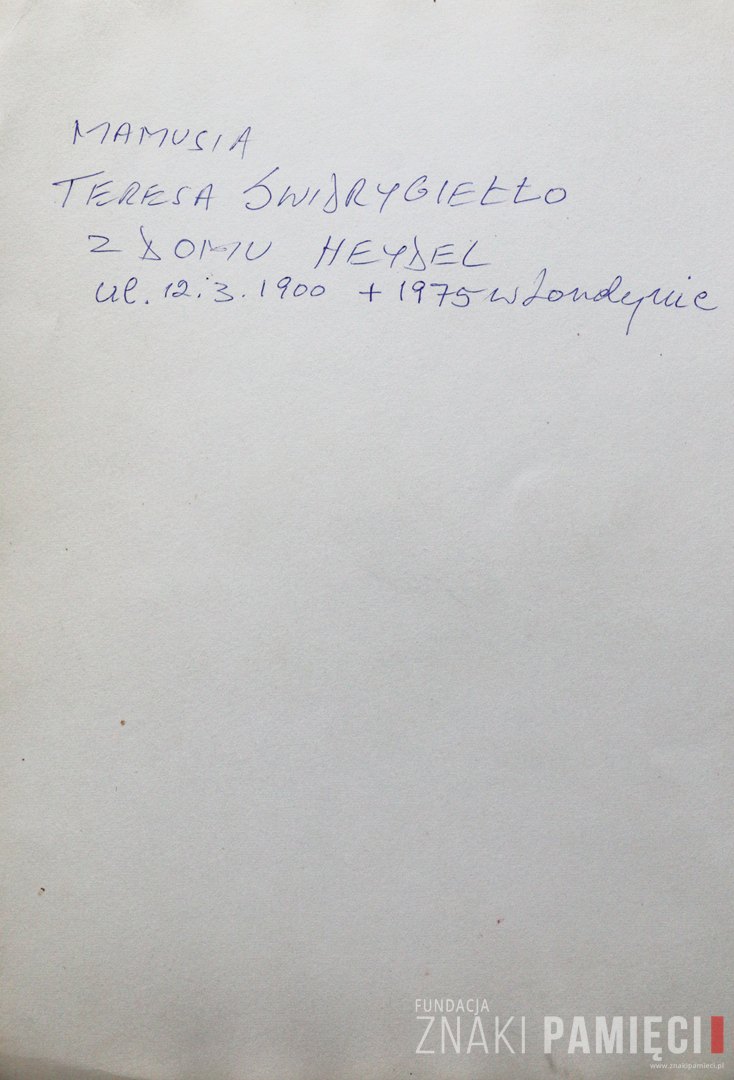 MAMUSIA
TERESA ŚWIDRYGIEŁŁO
Z DOMU HEYDEL
ur. 12.3.1900 + 1975 w Londynie
FUNDACJA
ZNAKI PAMIĘCI
www.znakipamieci.pl